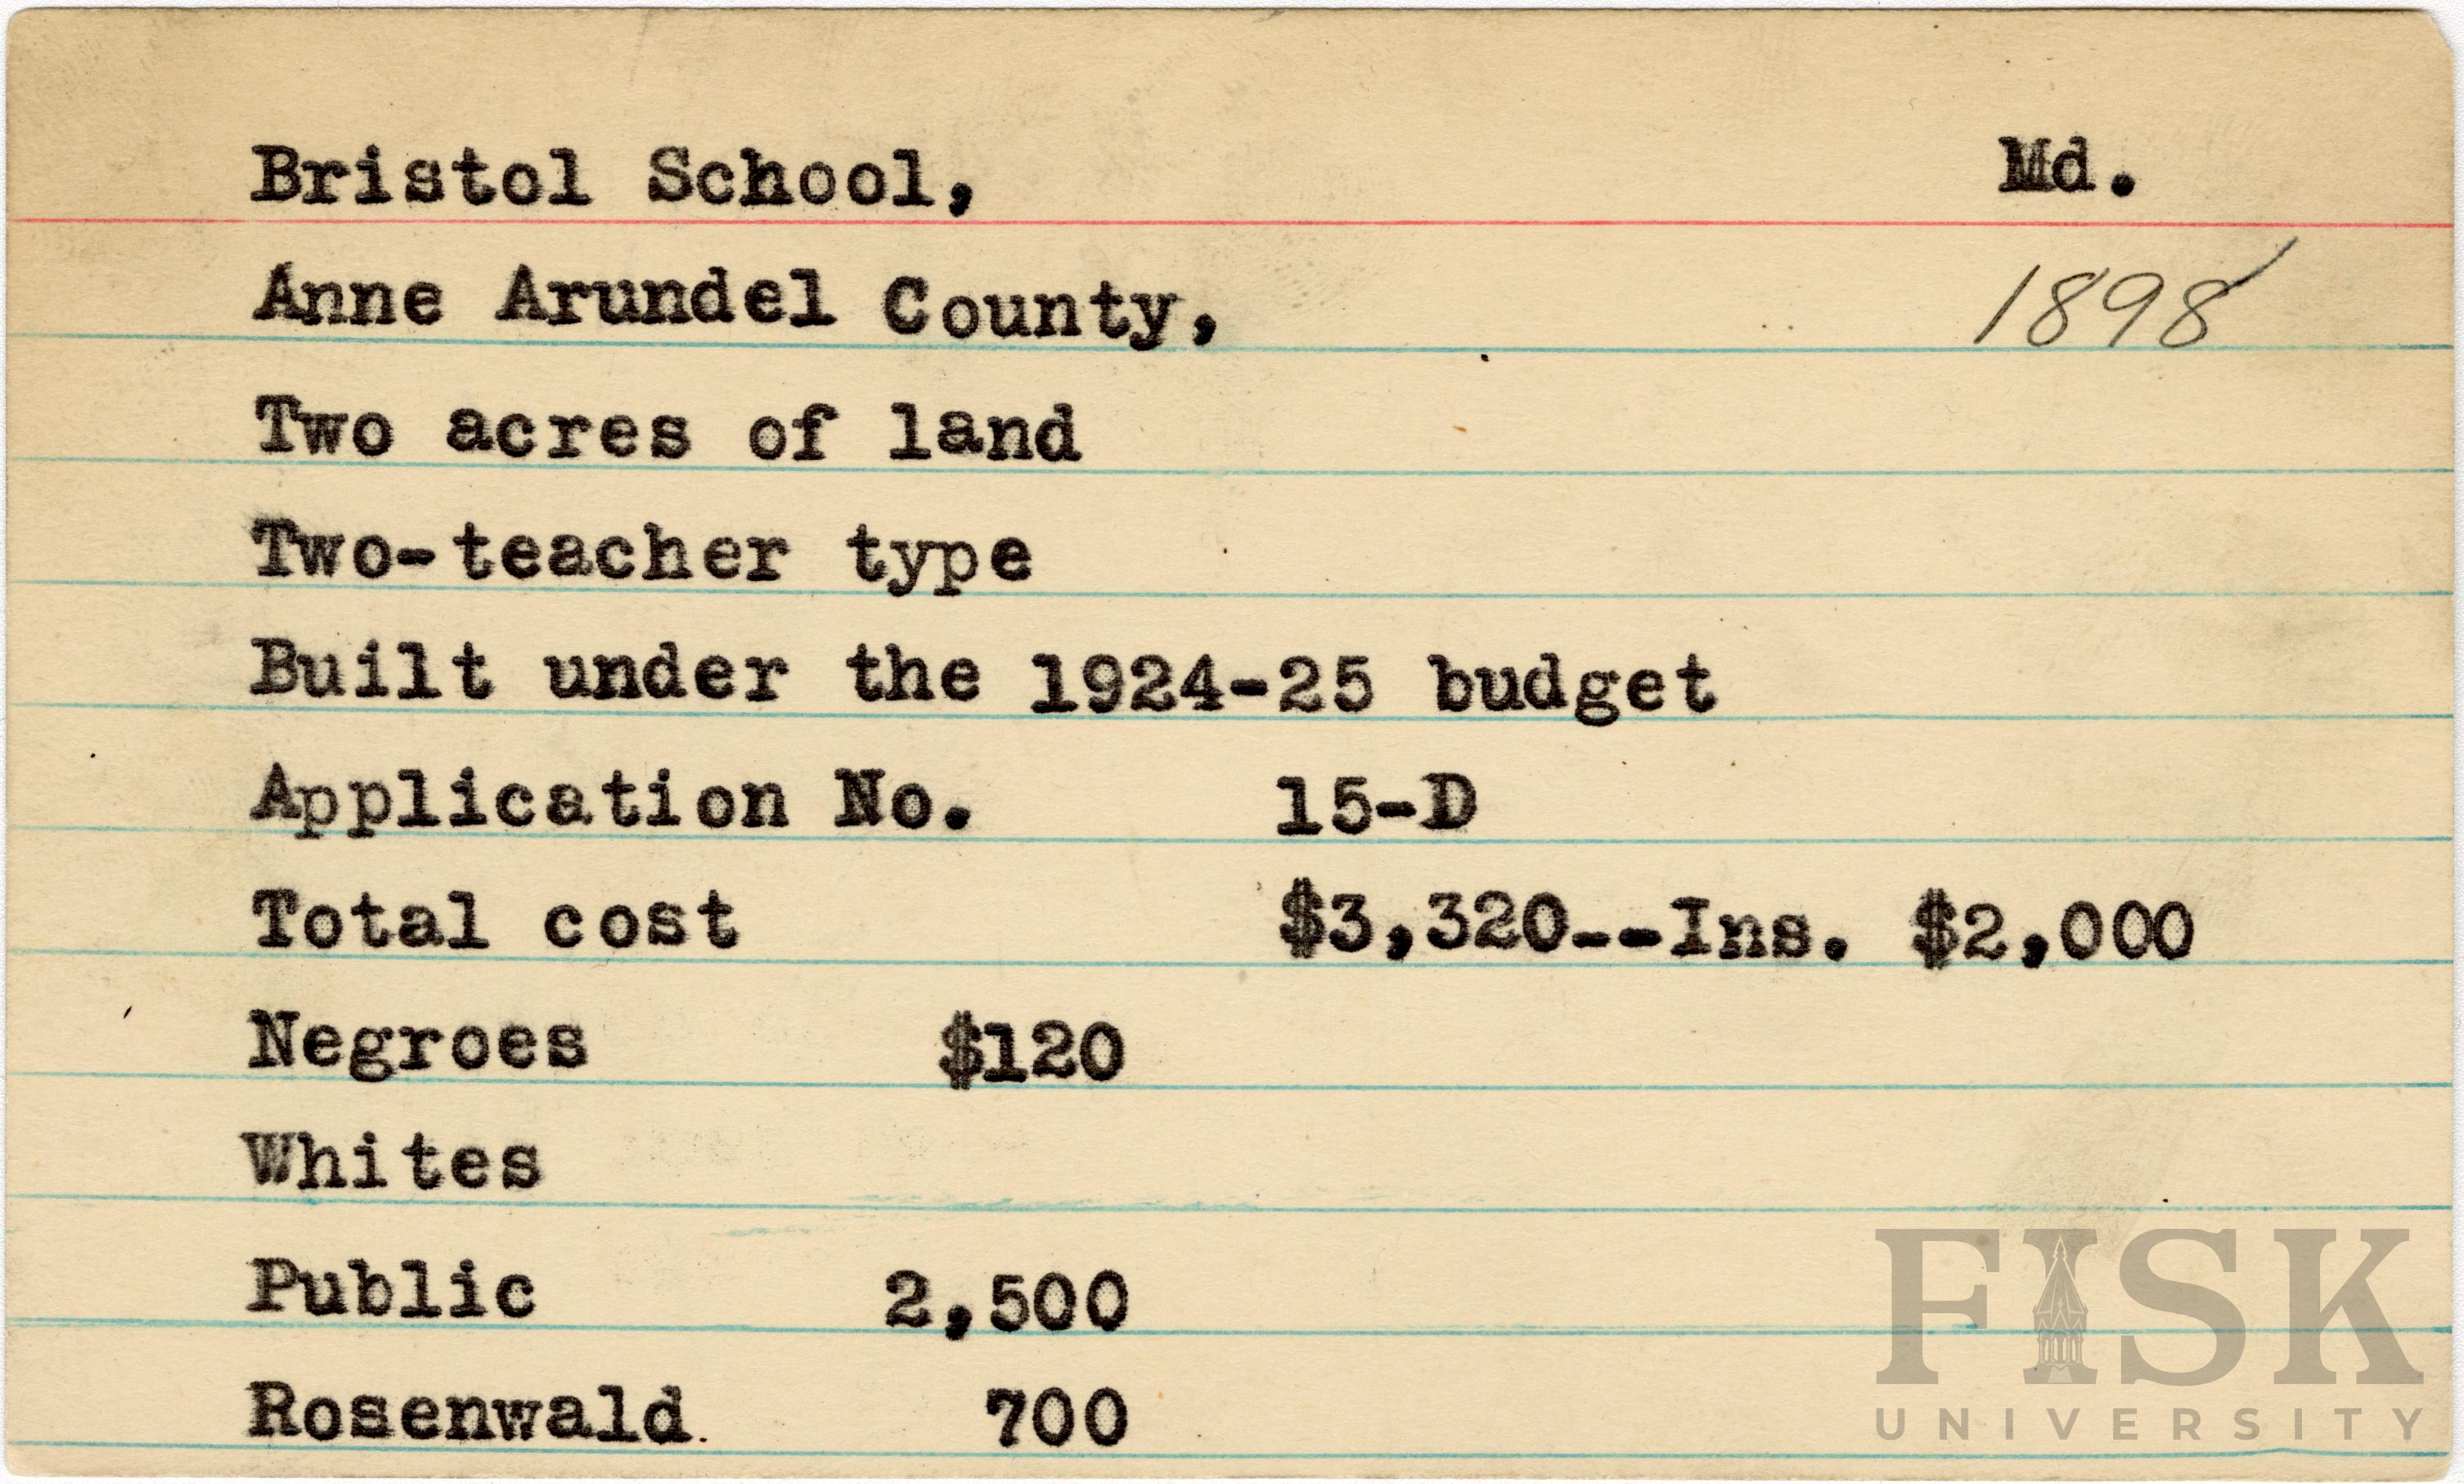 Bristol School, Md.
Anne Arundel County, 1898
Two acres of land
Two-teacher type
Built under the 1924-25 budget
Application No. 15-D
Total cost $3,320--Ins. $2,000
Negroes $120
Whites
Public 2,500
Rosenwald 700
FISK
UNIVERSITY